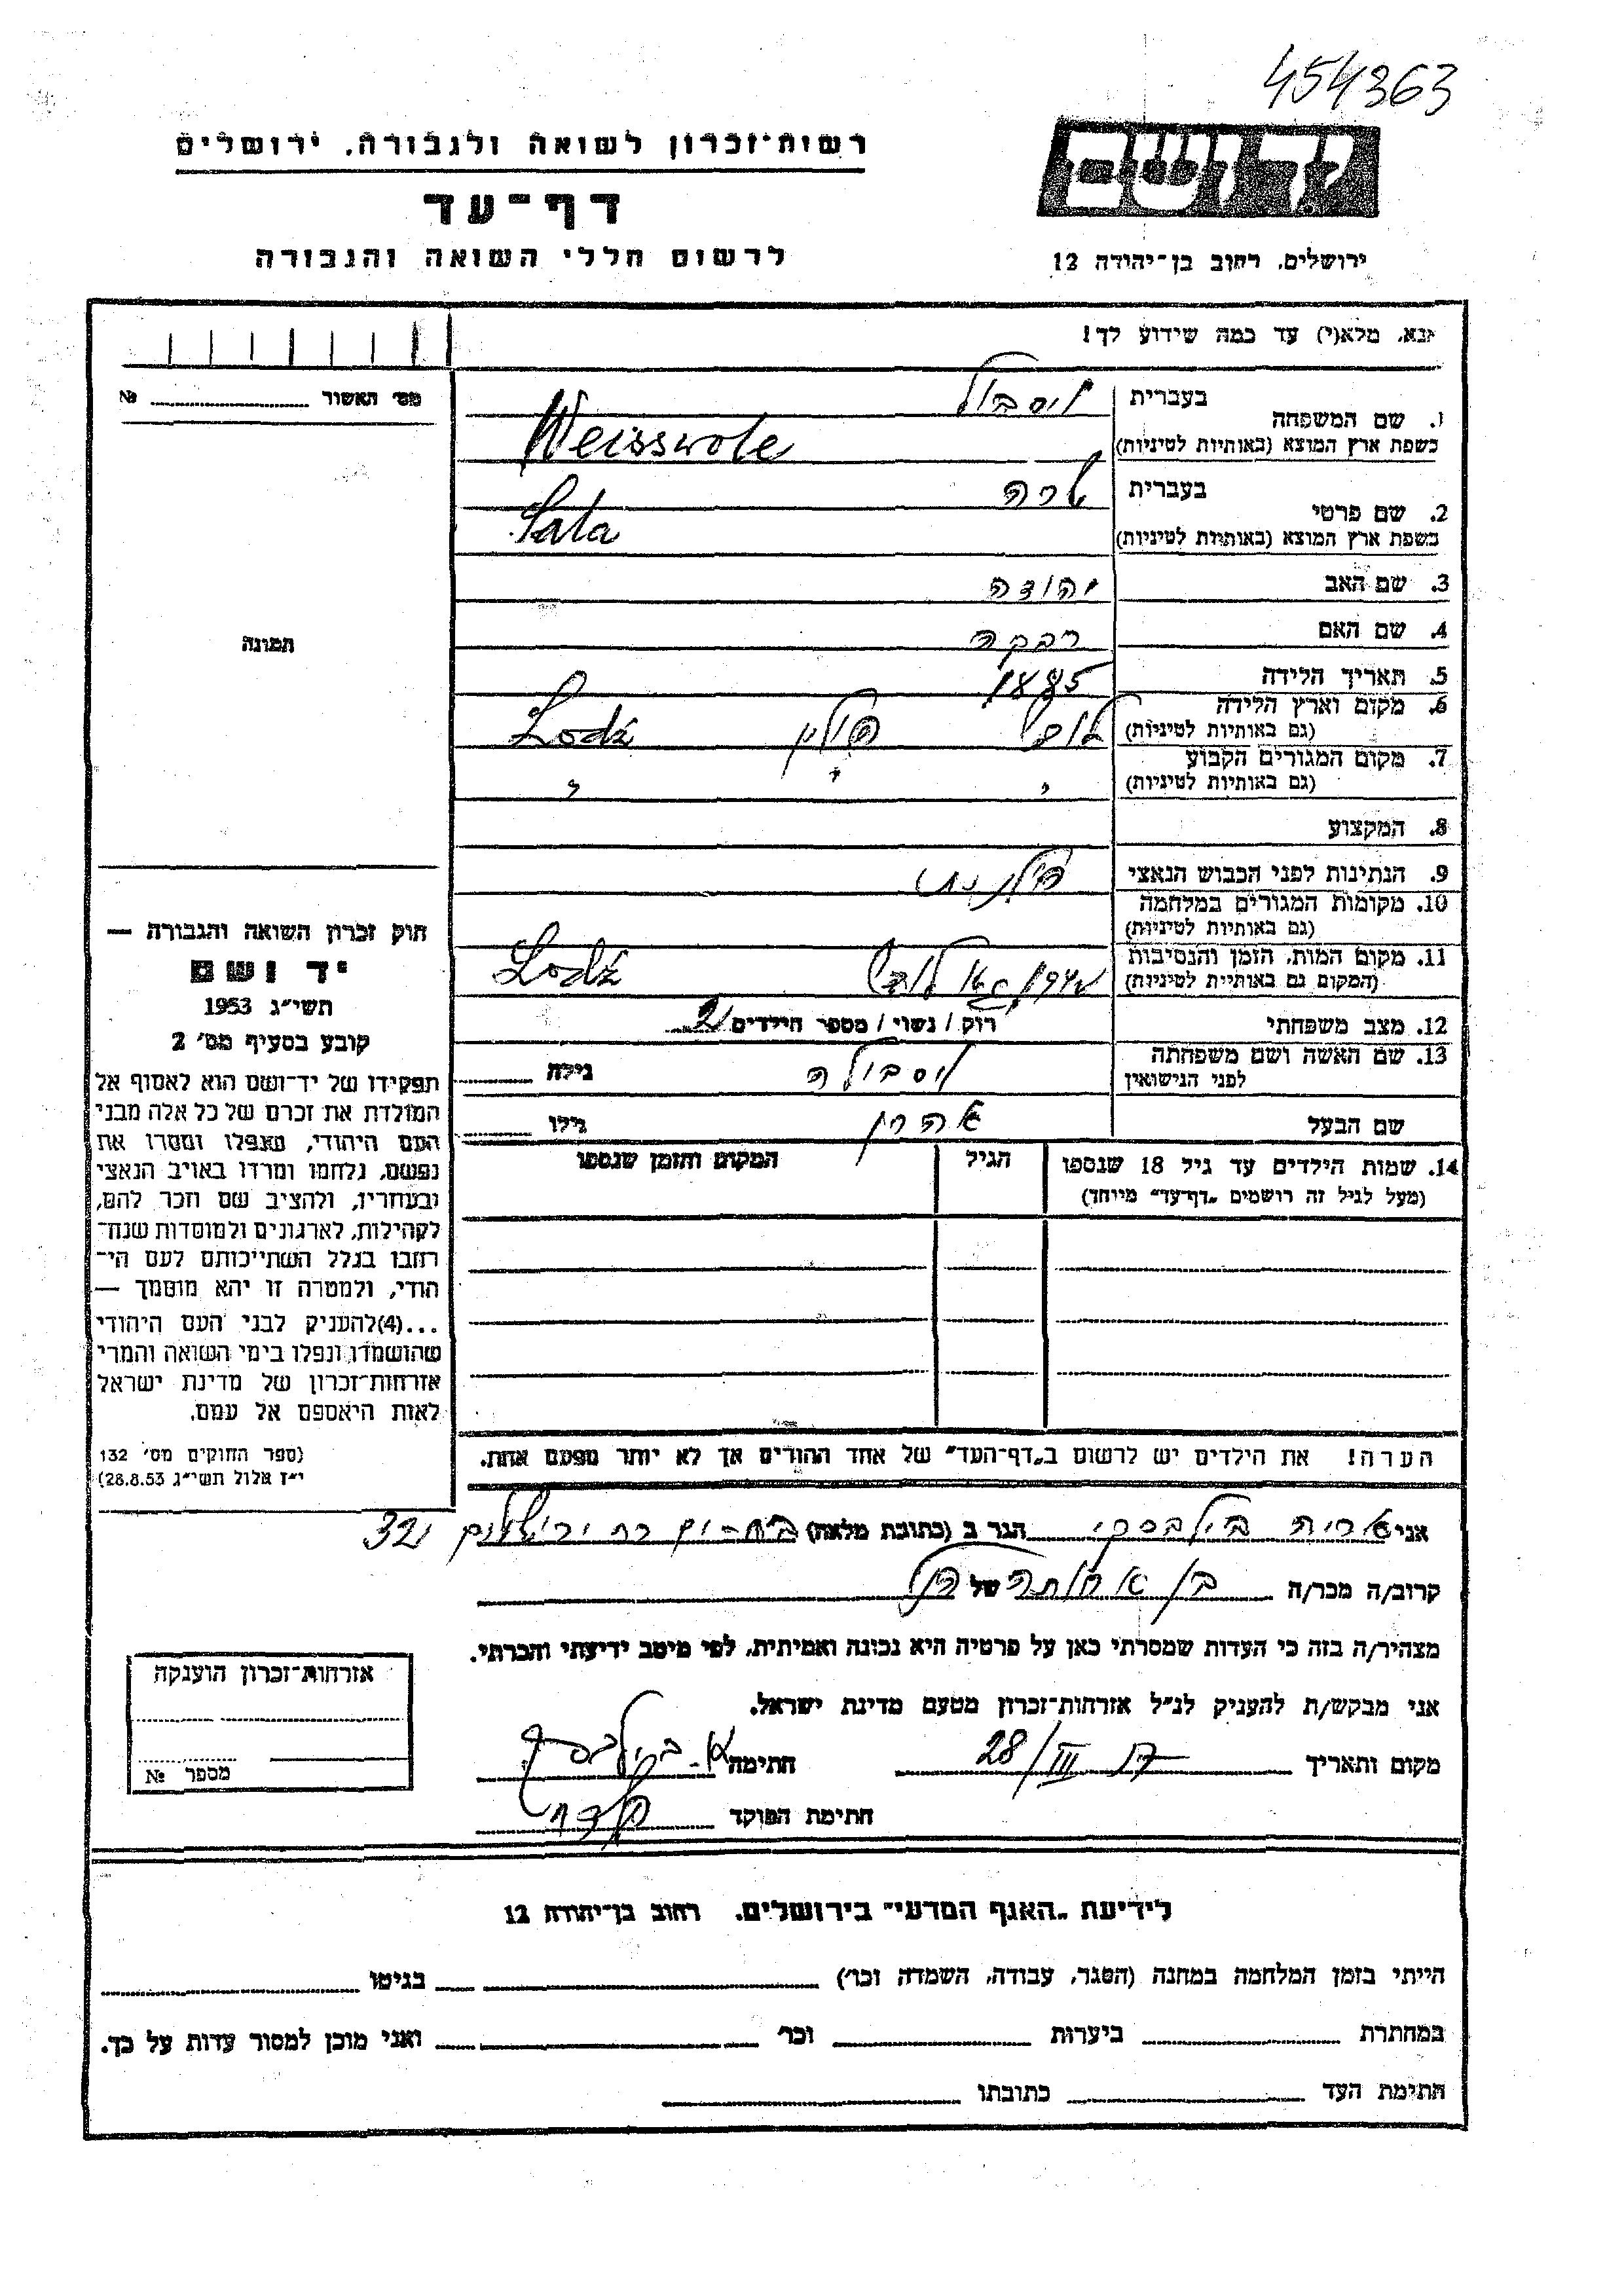 454363
רשות־זכרון לשואה ולגבורה. ירושלים
דף־עד
לרשום חללי השואה והגבורה
יד ושם
ירושלים. רחוב בן־יהודה 12
נא. מלא(י) עד כמה שידוע לך!
מס׳ האשור № 
1. שם המשפחה
בעברית
כשפת ארץ המוצא (באותיות לטיניות)
Weisswole
2. שם פרטי
בעברית שרה
כשפת ארץ המוצא (באותיות לטיניות)
Sala
3. שם האב יהודה
4. שם האם רבקה
5. תאריך הלידה 1885
6. מקום וארץ הלידה
(גם באותיות לטיניות) לודז׳ פולין Lodź
7. מקום המגורים הקבוע
(גם באותיות לטיניות) " " "
8. המקצוע
9. הנתינות לפני הכבוש הנאצי פולנית
10. מקומות המגורים במלחמה
(גם באותיות לטיניות)
11. מקום המות. הזמן והנסיבות
(המקום גם באותיות לטיניות) גטו לודז׳ Lodź
12. מצב משפחתי רווק / נשוי / מספר הילדים 2
13. שם האשה ושם משפחתה
לפני הנישואין גילה
שם הבעל אהרן גילו
14. שמות הילדים עד גיל 18 שנספו
(מעל לגיל זה רושמים „דף־עד״ מיוחד)
הגיל
המקום והזמן שנספו
הערה! את הילדים יש לרשום ב„דף־העד״ של אחד ההורים אך לא יותר מפעם אחת.
תמונה
חוק זכרון השואה והגבורה —
יד ושם
תשי״ג 1953
קובע בסעיף מס׳ 2
תפקידו של יד־ושם הוא לאסוף אל
המולדת את זכרם של כל אלה מבני
העם היהודי, שנפלו ומסרו את
נפשם, נלחמו ומרדו באויב הנאצי
ובעוזריו, ולהציב שם וזכר להם,
לקהילות, לארגונים ולמוסדות שנח־
רבו בגלל השתייכותם לעם הי־
הודי, ולמטרה זו יהא מוסמך —
...(4)להעניק לבני העם היהודי
שהושמדו ונפלו בימי השואה והמרי
אזרחות־זכרון של מדינת ישראל
לאות היאספם אל עמם.
(ספר החוקים מס׳ 132
י״ז אלול תשי״ג 28.8.53)
אני הגר ב (כתובת מלאה)
קרוב/ה מכר/ה של
מצהיר/ה בזה כי העדות שמסרתי כאן על פרטיה היא נכונה ואמיתית, לפי מיטב ידיעתי והכרתי.
אני מבקש/ת להעניק לנ״ל אזרחות־זכרון מטעם מדינת ישראל.
מקום ותאריך 28/III חתימה
חתימת הפוקד
אזרחות־זכרון הוענקה
מספר №
לידיעת „האגף המדעי״ בירושלים. רחוב בן־יהודה 12
הייתי בזמן המלחמה במחנה (הסגר, עבודה, השמדה וכו׳) בגיטו
במחתרת ביערות וכו׳ ואני מוכן למסור עדות על כך.
חתימת העד כתובתו